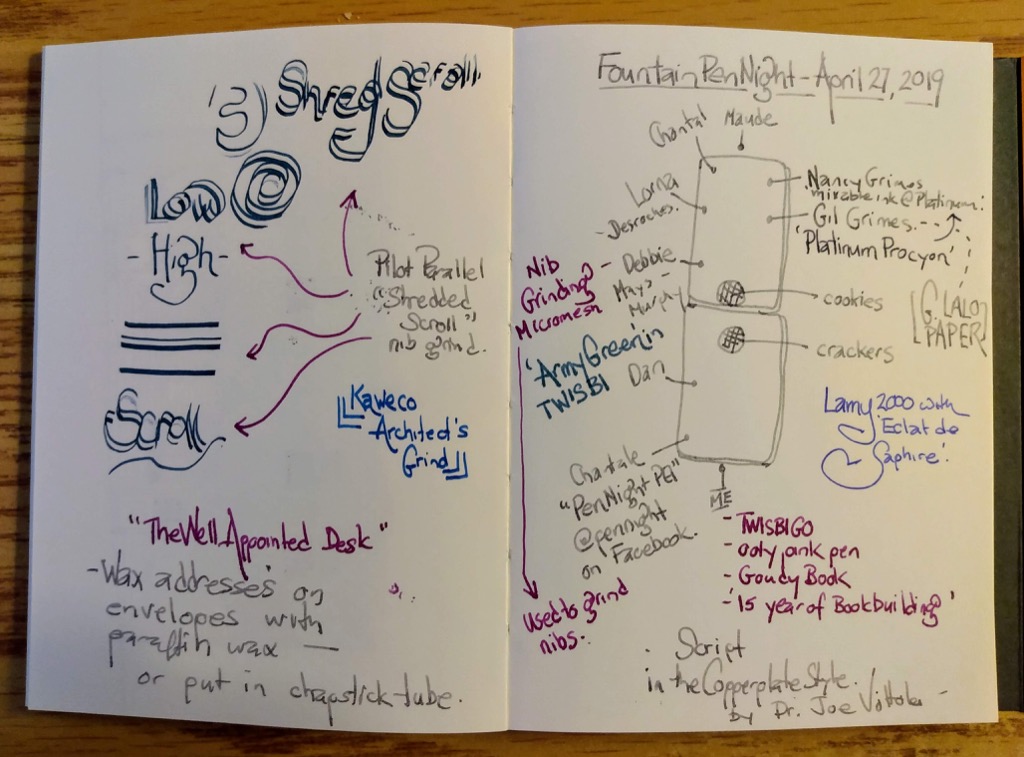 'S) Shred Scroll
Low
- High -
Scroll
Pilot Parallel
"Shredded
Scroll"
nib grind.
Kaweco
Architect's
Grind
"The Well Appointed Desk"
- Wax addresses on
envelopes with
paraffin wax —
or put in chapstick tube.
Fountain Pen Night - April 27, 2019
Chantal
Maude
Lorna
Desroches.
- Debbie
Mays-
Murphy
Dan
Chantale
"Pen Night PEI"
@pennight
on Facebook.
ME
Nancy Grimes
ink @ Platinum!
Gil Grimes.
'Platinum Procyon'
[G. LALO
PAPER]
cookies
crackers
Nib
Grinding?
Micromesh
Used to grind
nibs.
'Army Green' in
TWISBI
Lamy 2000 with
'Eclat de
Saphire'.
- TWISBI GO
- ooly pink pen
- Goudy Book
- '15 year of Bookbuilding'
. Script
in the Copperplate Style.
by Dr. Joe